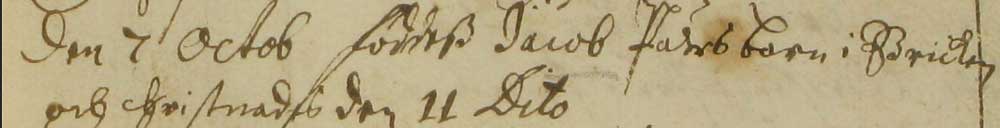 Den 7 Octob föddeß Jacob Påvers barn i Bricken
och Christnades den 11 Dito